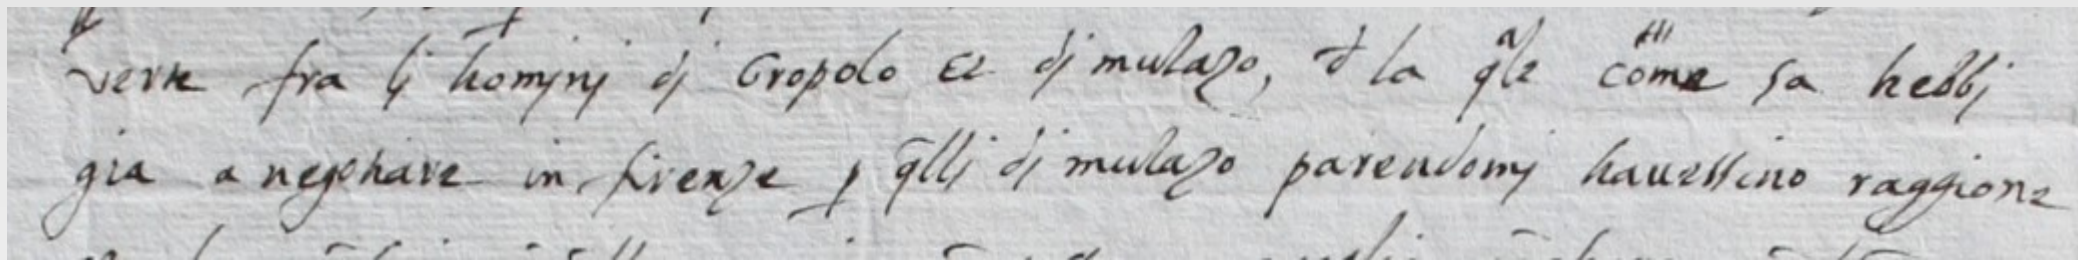 verte fra lj homjnj dj Gropolo et dj mulazo, d la qle come sa hebbj
gia a negotiare in firenze p qllj dj mulazo parendomj hauessino raggione